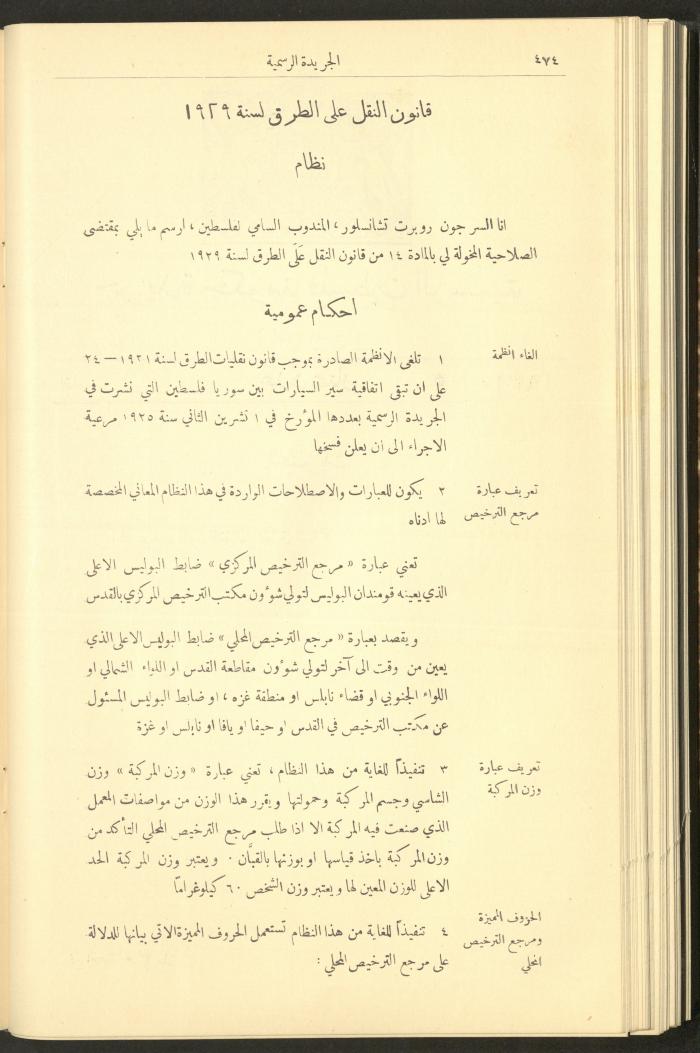 ٤٧٤
الجريدة الرسمية
قانون النقل على الطرق لسنة ١٩٢٩
نظام
انا السر جون روبرت تشانسلور، المندوب السامي لفلسطين، ارسم ما يلي بمقتضى
الصلاحية المخولة لي بالمادة ١٤ من قانون النقل على الطرق لسنة ١٩٢٩
احكام عمومية
الغاء انظمة
١ تلغى الانظمة الصادرة بموجب قانون نقليات الطرق لسنة ١٩٢١—٢٤
على ان تبقى اتفاقية سير السيارات بين سوريا فلسطين التي نشرت في
الجريدة الرسمية بعددها المؤرخ في ١ تشرين الثاني سنة ١٩٢٥ مرعية
الاجراء الى ان يعلن فسخها
تعريف عبارة
مرجع الترخيص
٢ يكون للعبارات والاصطلاحات الواردة في هذا النظام المعاني المخصصة
لها ادناه
تعني عبارة « مرجع الترخيص المركزي » ضابط البوليس الاعلى
الذي يعينه قومندان البوليس لتولي شؤون مكتب الترخيص المركزي بالقدس
ويقصد بعبارة « مرجع الترخيص المحلي » ضابط البوليس الاعلى الذي
يعين من وقت الى آخر لتولي شؤون مقاطعة القدس او اللواء الشمالي او
اللواء الجنوبي او قضاء نابلس او منطقة غزه، او ضابط البوليس المسئول
عن مكتب الترخيص في القدس او حيفا او يافا او نابلس او غزة
تعريف عبارة
وزن المركبة
٣ تنفيذاً للغاية من هذا النظام، تعني عبارة « وزن المركبة » وزن
الشاسي وجسم المركبة وحمولتها ويقرر هذا الوزن من مواصفات المعمل
الذي صنعت فيه المركبة الا اذا طلب مرجع الترخيص المحلي التأكد من
وزن المركبة باخذ قياسها او بوزنها بالقبَّان . ويعتبر وزن المركبة الحد
الاعلى للوزن المعين لها ويعتبر وزن الشخص ٦٠ كيلوغراماً
الحروف المميزة
ومرجع الترخيص
المحلي
٤ تنفيذاً للغاية من هذا النظام تستعمل الحروف المميزة الاتي بيانها للدلالة
على مرجع الترخيص المحلي :